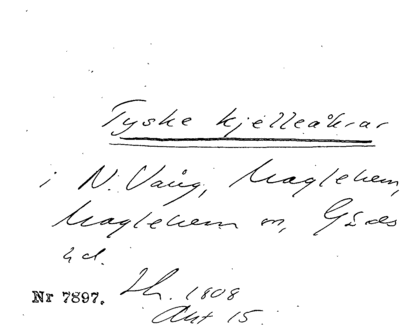 Tyske kjelleåkrar
i N. Vång, Maglehem,
Maglehem sn, Gärds
hd.
Nr 7897. Lh. 1808
Akt 15.